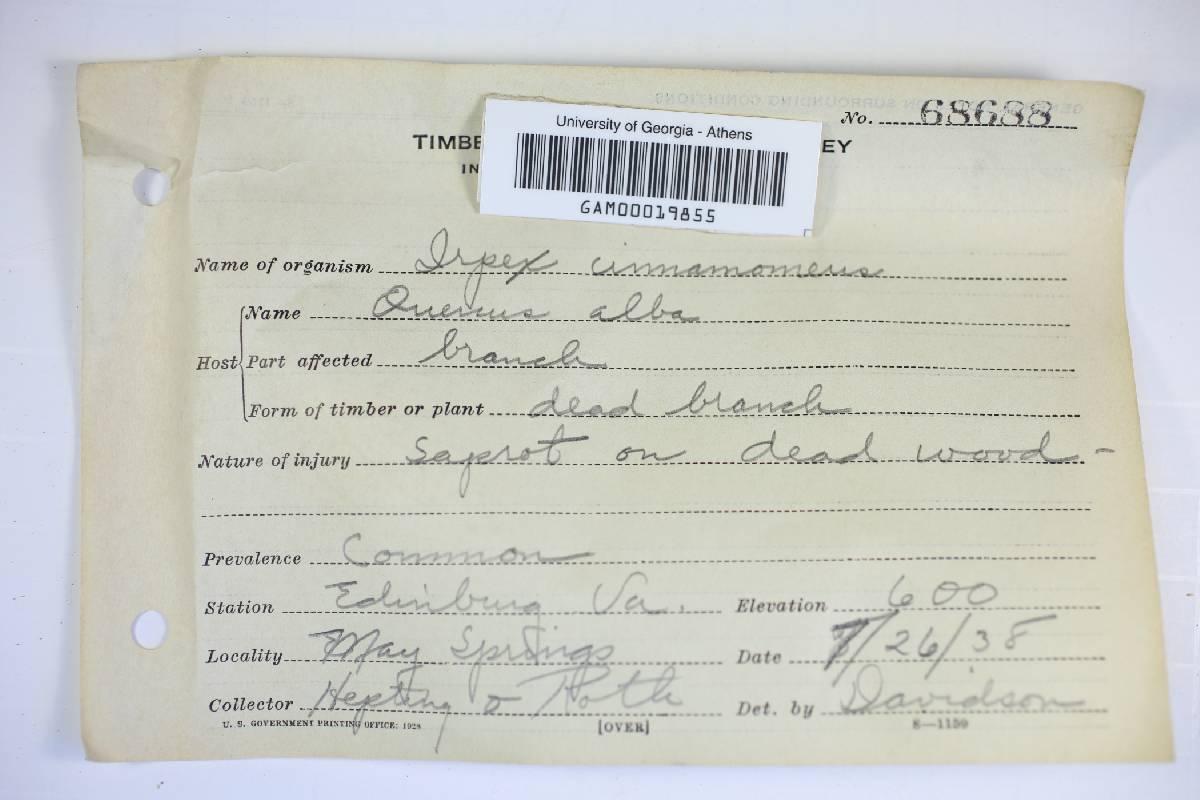 No. 68688
University of Georgia - Athens
GAM00019855
TIMBE EY
IN
Name of organism Irpex cinnamomeus
Host Name Quercus alba
Part affected branch
Form of timber or plant dead branch
Nature of injury Saprot on dead wood -
Prevalence Common
Station Edinburg Va. Elevation 600
Locality May Springs Date 7/26/38
Collector Hepting & Roth Det. by Davidson
U. S. GOVERNMENT PRINTING OFFICE: 1928 [OVER] 8—1159